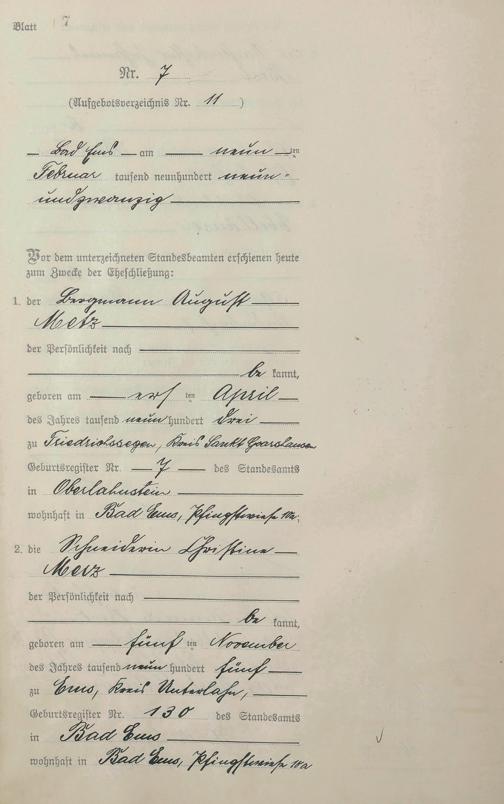 Blatt 7
Nr. 7
(Aufgebotsverzeichnis Nr. 11)
Bad Ems am neun ten
Februar tausend neunhundert neun-
undzwanzig
Vor dem unterzeichneten Standesbeamten erschienen heute
zum Zwecke der Eheschließung:
1. der Bergmann August
Metz
der Persönlichkeit nach
be kannt,
geboren am ers ten April
des Jahres tausend neun hundert drei
zu Friedrichssegen, Kreis Sankt Goarshausen
Geburtsregister Nr. 7 des Standesamts
in Oberlahnstein
wohnhaft in Bad Ems, Pfingstwiese 11a.
2. die Schneiderin Christine
Merz
der Persönlichkeit nach
be kannt,
geboren am fünf ten November
des Jahres tausend neun hundert fünf
zu Ems, Kreis Unterlahn,
Geburtsregister Nr. 130 des Standesamts
in Bad Ems
wohnhaft in Bad Ems, Pfingstwiese 11a